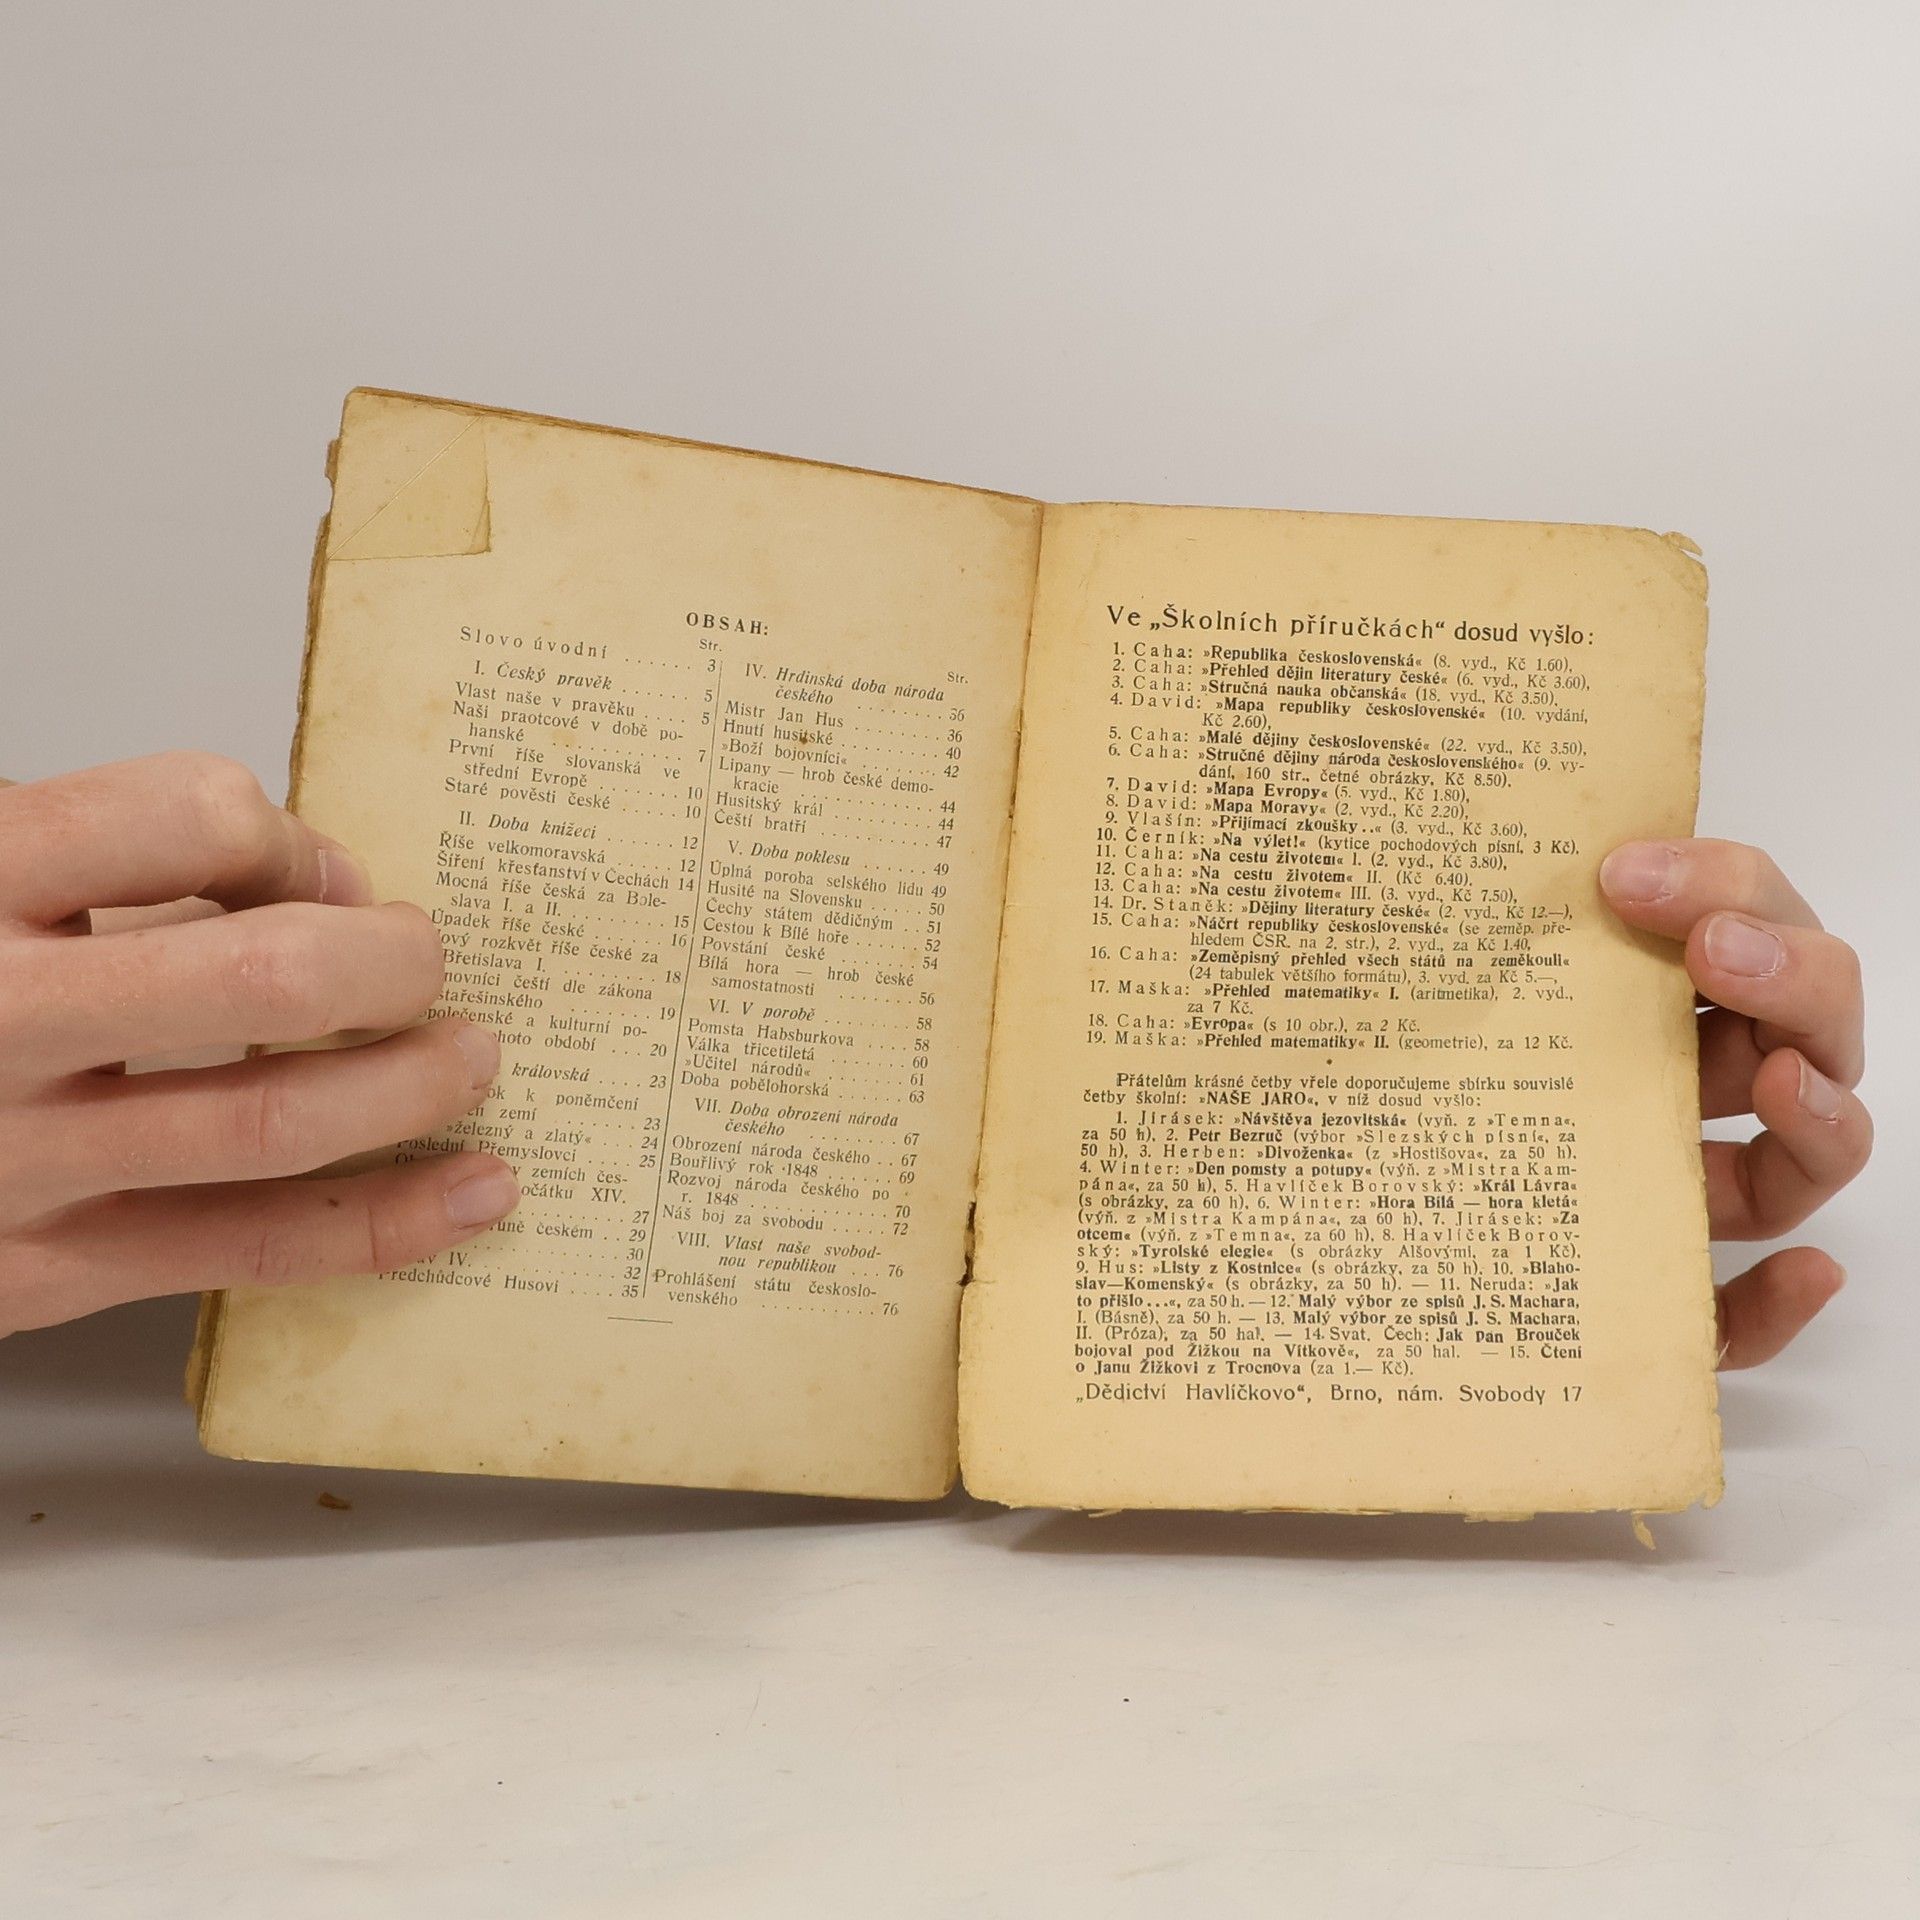 OBSAH:
Str.
Slovo úvodní . . . . . . 3
I. Český pravěk . . . . . . 5
Vlast naše v pravěku . . . . 5
Naši praotcové v době po-
hanské . . . . . . . . . 7
První říše slovanská ve
střední Evropě . . . . . . . 10
Staré pověsti české . . . . . 10
II. Doba knížecí . . . . . . 12
Říše velkomoravská . . . . . 12
Šíření křesťanství v Čechách 14
Mocná říše česká za Bole-
slava I. a II. . . . . . . . 15
Úpadek říše české . . . . . . 16
ový rozkvět říše české za
Břetislava I. . . . . . . . . 18
novníci čeští dle zákona
stařešinského . . . . . . . 19
společenské a kulturní po-
hoto období . . . 20
královská . . . . 23
ok k poněmčení
zemí . . . . . . . 23
»železný a zlatý« . . . 24
Poslední Přemyslovci . . . . 25
v zemích čes-
očátku XIV.
. . . . . . . . . 27
runě českém . . 29
. . . . . . . . . 30
av IV. . . . . . . . . . 32
Předchůdcové Husovi . . . . 35
Str.
IV. Hrdinská doba národa
českého . . . . . . . . 36
Mistr Jan Hus . . . . . . . 36
Hnutí husitské . . . . . . . 40
»Boží bojovníci« . . . . . . . 42
Lipany — hrob české demo-
kracie . . . . . . . . . . 44
Husitský král . . . . . . . . 44
Čeští bratři . . . . . . . . 47
V. Doba poklesu . . . . . . 49
Úplná poroba selského lidu 49
Husité na Slovensku . . . . . 50
Čechy státem dědičným . . 51
Cestou k Bílé hoře . . . . . 52
Povstání české . . . . . . . 54
Bílá hora — hrob české
samostatnosti . . . . . . . 56
VI. V porobě . . . . . . . . 58
Pomsta Habsburkova . . . . 58
Válka třicetiletá . . . . . . 60
»Učitel národů« . . . . . . . 61
Doba pobělohorská . . . . . . 63
VII. Doba obrození národa
českého . . . . . . . . 67
Obrození národa českého . . 67
Bouřlivý rok 1848 . . . . . . 69
Rozvoj národa českého po
r. 1848 . . . . . . . . . . 70
Náš boj za svobodu . . . . . 72
VIII. Vlast naše svobod-
nou republikou . . . 76
Prohlášení státu českoslo-
venského . . . . . . . . . . 76
Ve „Školních příručkách“ dosud vyšlo:
1. Caha: »Republika československá« (8. vyd., Kč 1.60),
2. Caha: »Přehled dějin literatury české« (6. vyd., Kč 3.60),
3. Caha: »Stručná nauka občanská« (18. vyd., Kč 3.50),
4. David: »Mapa republiky československé« (10. vydání,
Kč 2.60),
5. Caha: »Malé dějiny československé« (22. vyd., Kč 3.50),
6. Caha: »Stručné dějiny národa československého« (9. vy-
dání, 160 str., četné obrázky, Kč 8.50),
7. David: »Mapa Evropy« (5. vyd., Kč 1.80),
8. David: »Mapa Moravy« (2. vyd., Kč 2.20),
9. Vlašín: »Přijímací zkoušky..« (3. vyd., Kč 3.60),
10. Černík: »Na výlet!« (kytice pochodových písní, 3 Kč),
11. Caha: »Na cestu životem« I. (2. vyd., Kč 3.80),
12. Caha: »Na cestu životem« II. (Kč 6.40),
13. Caha: »Na cestu životem« III. (3. vyd., Kč 7.50),
14. Dr. Staněk: »Dějiny literatury české« (2. vyd., Kč 12.—),
15. Caha: »Náčrt republiky československé« (se zeměp. pře-
hledem ČSR. na 2. str.), 2. vyd., za Kč 1.40,
16. Caha: »Zeměpisný přehled všech států na zeměkouli«
(24 tabulek většího formátu), 3. vyd. za Kč 5.—,
17. Maška: »Přehled matematiky« I. (aritmetika), 2. vyd.,
za 7 Kč.
18. Caha: »Evropa« (s 10 obr.), za 2 Kč.
19. Maška: »Přehled matematiky« II. (geometrie), za 12 Kč.
Přátelům krásné četby vřele doporučujeme sbírku souvislé
četby školní: »NAŠE JARO«, v níž dosud vyšlo:
1. Jirásek: »Návštěva jezovitská« (vyň. z »Temna«,
za 50 h), 2. Petr Bezruč (výbor »Slezských písní«, za
50 h), 3. Herben: »Divoženka« (z »Hostišova«, za 50 h).
4. Winter: »Den pomsty a potupy« (výň. z »Mistra Kam-
pána«, za 50 h), 5. Havlíček Borovský: »Král Lávra«
(s obrázky, za 60 h), 6. Winter: »Hora Bílá — hora kletá«
(výň. z »Mistra Kampána«, za 60 h), 7. Jirásek: »Za
otcem« (výň. z »Temna«, za 60 h), 8. Havlíček Borov-
ský: »Tyrolské elegie« (s obrázky Alšovými, za 1 Kč),
9. Hus: »Listy z Kostnice« (s obrázky, za 50 h). 10. »Blaho-
slav—Komenský« (s obrázky, za 50 h). — 11. Neruda: »Jak
to přišlo...«, za 50 h. — 12. Malý výbor ze spisů J. S. Machara,
I. (Básně), za 50 h. — 13. Malý výbor ze spisů J. S. Machara,
II. (Próza), za 50 hal. — 14. Svat. Čech: Jak pan Brouček
bojoval pod Žižkou na Vítkově«, za 50 hal. — 15. Čtení
o Janu Žižkovi z Trocnova (za 1.— Kč).
„Dědictví Havlíčkovo“, Brno, nám. Svobody 17